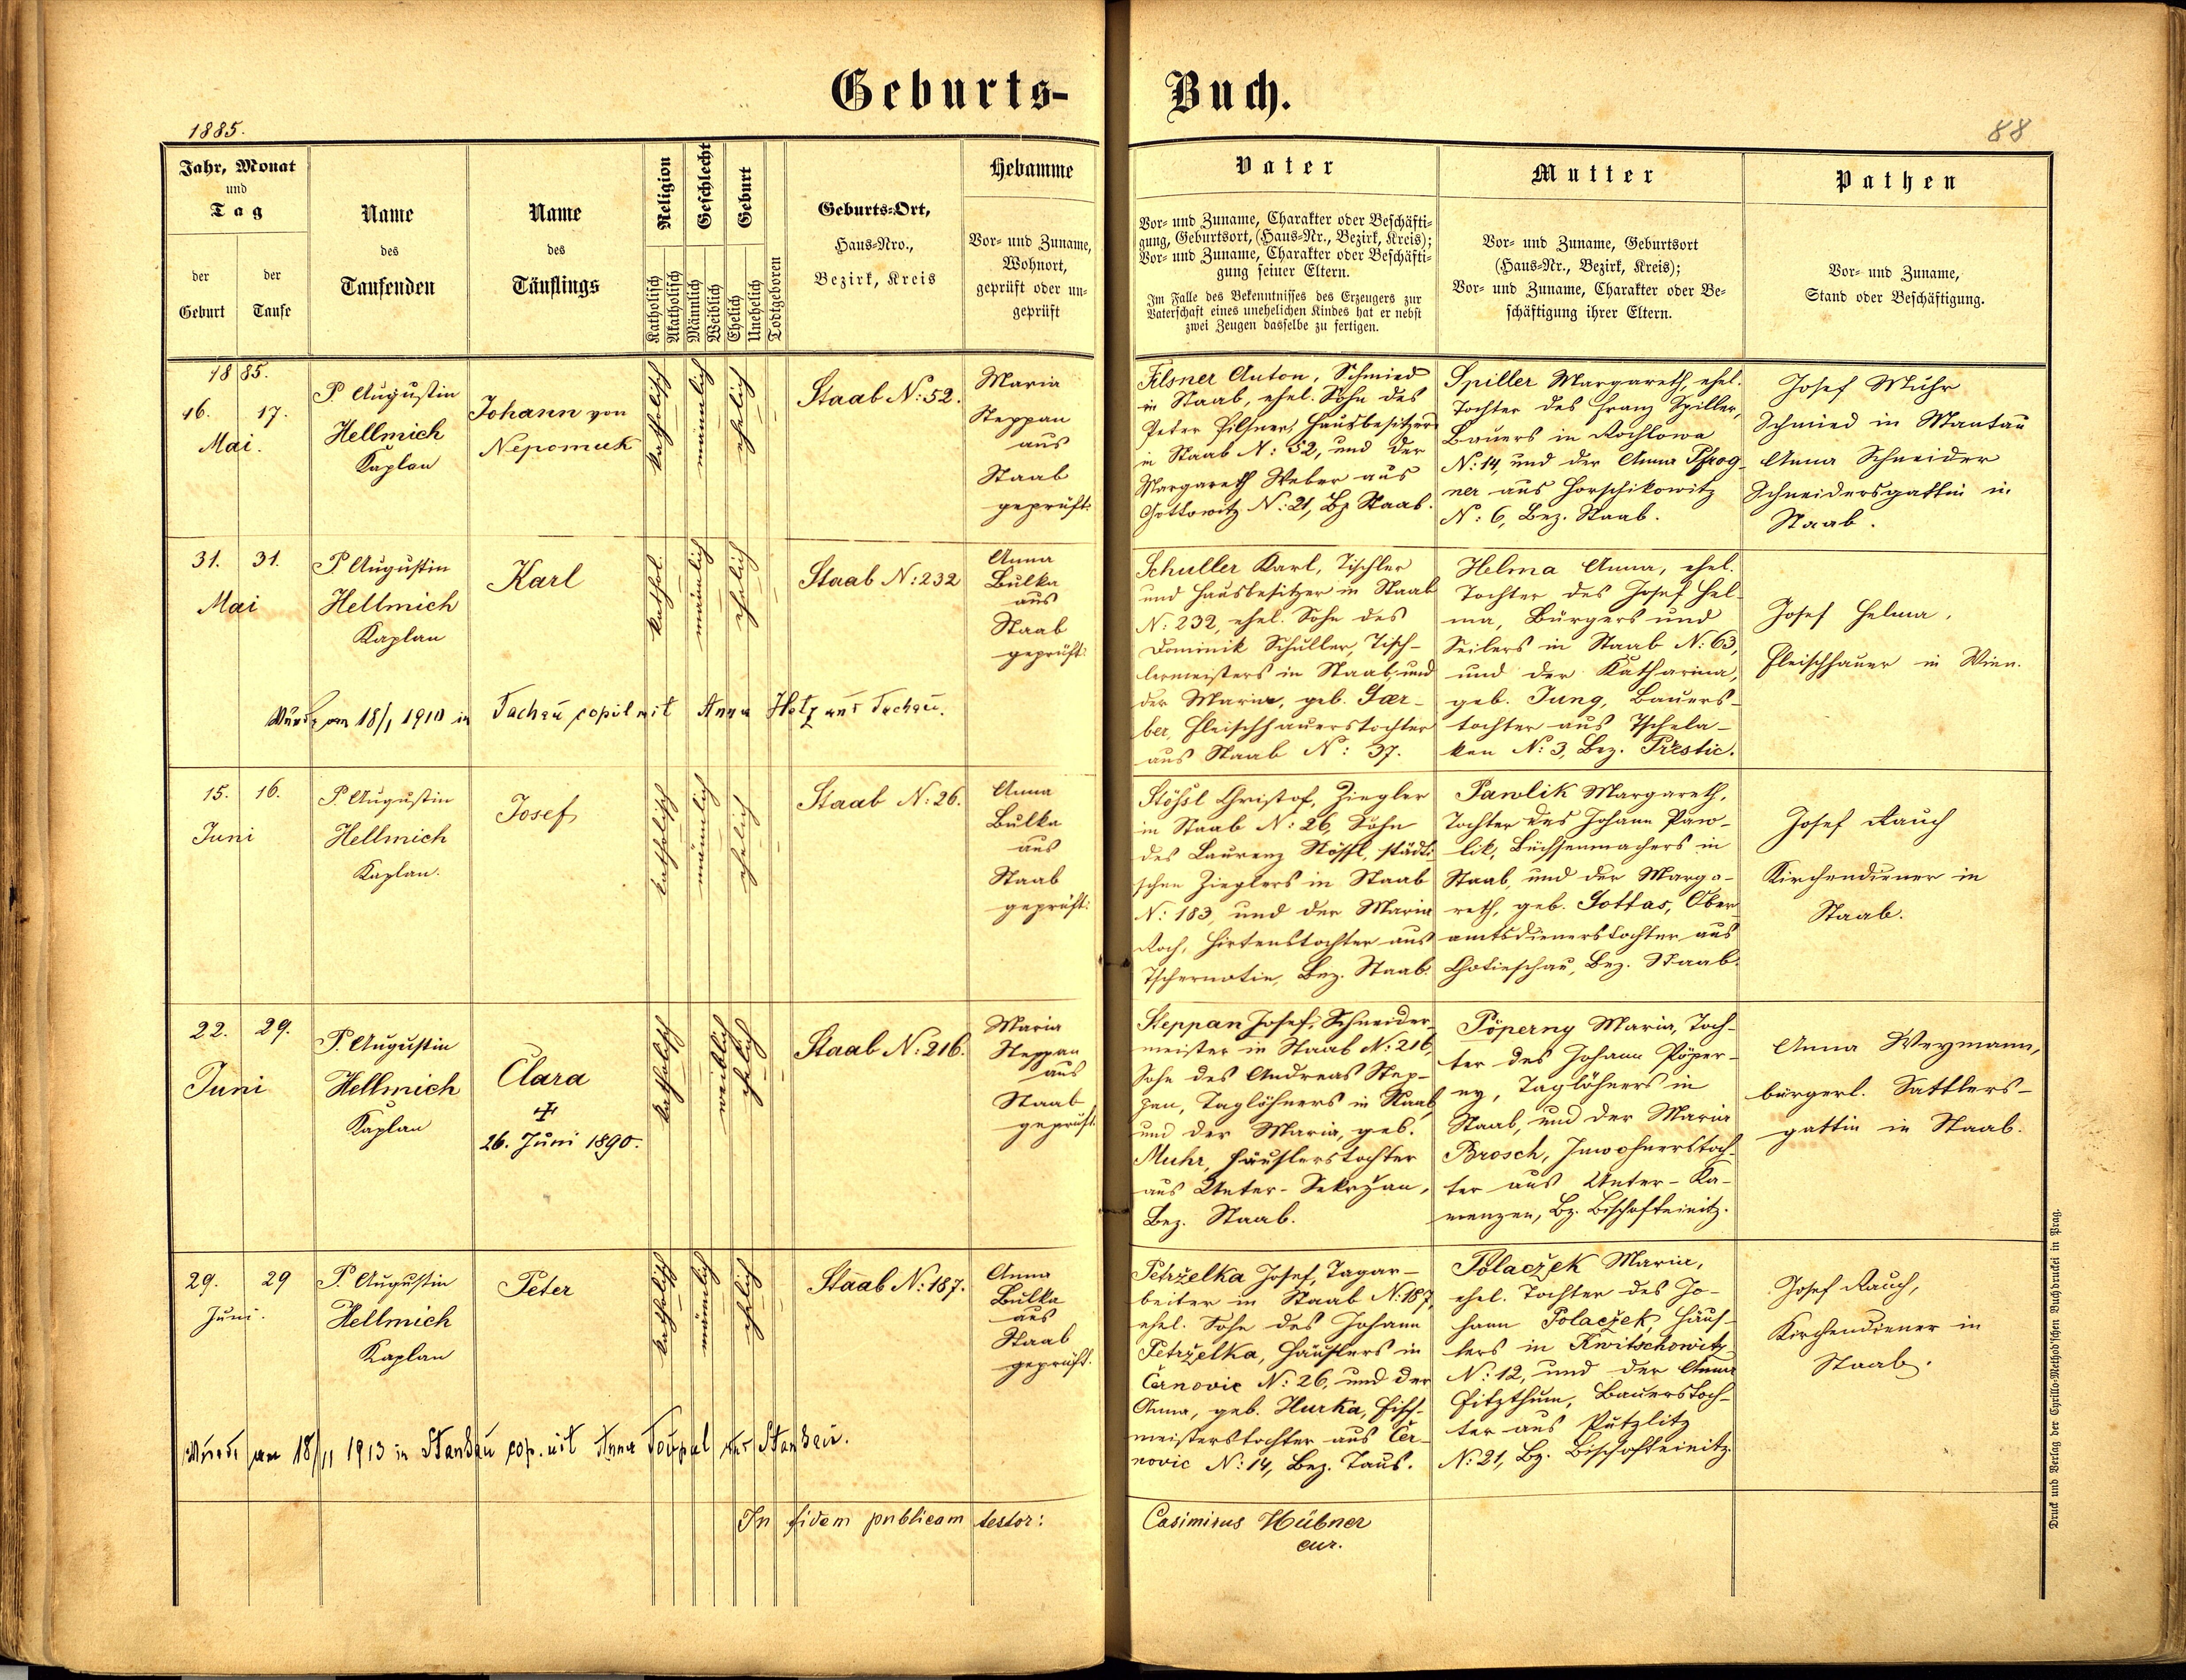 Geburts-
Buch.
1885.
88
Jahr, Monat
und
Tag
der
Geburt
der
Taufe
Name
des
Taufenden
Name
des
Täuflings
Religion
Katholisch
Akatholisch
Geschlecht
Männlich
Weiblich
Geburt
Ehelich
Unehelich
Todtgeboren
Geburts-Ort,
Haus-Nro.,
Bezirk, Kreis
Hebamme
Vor- und Zuname,
Wohnort,
geprüft oder un-
geprüft
Vater
Vor- und Zuname, Charakter oder Beschäfti-
gung, Geburtsort, (Haus-Nr., Bezirk, Kreis);
Vor- und Zuname, Charakter oder Beschäfti-
gung seiner Eltern.
Im Falle des Bekenntnisses des Erzeugers zur
Vaterschaft eines unehelichen Kindes hat er nebst
zwei Zeugen dasselbe zu fertigen.
Mutter
Vor- und Zuname, Geburtsort
(Haus-Nr., Bezirk, Kreis);
Vor- und Zuname, Charakter oder Be-
schäftigung ihrer Eltern.
Pathen
Vor- und Zuname,
Stand oder Beschäftigung.
1885.
16. 17.
Mai.
P. Augustin
Hellmich
Kaplan
Johann von
Nepomuk
katholisch
männlich
ehelich
Staab N: 52.
Maria
Steppan
aus
Staab
geprüft.
Pilsner Anton, Schmied
in Staab, ehel. Sohn des
Peter Pilsner, Hausbesitzers
in Staab N: 52, und der
Margareth Weber aus
Gottowitz N: 21, Bz Staab.
Spiller Margareth, ehel.
Tochter des Franz Spiller,
Bauers in Rochlowa
N: 14, und der Anna Pfrog-
ner aus Horschikowitz
N: 6, Bez. Staab.
Josef Muhr
Schmied in Mantau
Anna Schneider
Schneidersgattin in
Staab.
31. 31.
Mai
P Augustin
Hellmich
Kaplan
Karl
kathol.
männlich
ehelich
Staab N: 232
Anna
Bulka
aus
Staab
geprüft.
Schuller Karl, Tischler
und Hausbesitzer in Staab
N: 232, ehel. Sohn des
Dominik Schuller, Tisch-
lermeisters in Staab, und
der Maria, geb. Fær-
ber, Fleischhauerstochter
aus Staab N: 37.
Helma Anna, ehel.
Tochter des Josef Hel-
ma, Bürgers und
Seilers in Staab N: 63,
und der Katharina,
geb. Jung, Bauers-
tochter aus Tschela-
ken N: 3, Bez. Přestic.
Josef Helma,
Fleischhauer in Wien.
Wurde am 18/1 1910 in Tachau copul mit Anna Hotz aus Tachau.
15. 16.
Juni
P. Augustin
Hellmich
Kaplan.
Josef
katholisch
männlich
ehelich
Staab N: 26.
Anna
Bulka
aus
Staab
geprüft.
Stössl Christof, Ziegler
in Staab N: 26, Sohn
des Laurenz Stössl, städti-
schen Zieglers in Staab
N: 183, und der Maria
Koch, Hirtenstochter aus
Tschernotin, Bez. Staab.
Pawlik Margareth,
Tochter des Johann Paw-
lik, Büchsenmachers in
Staab, und der Marga-
reth, geb. Gottas, Ober-
amtsdienerstochter aus
Chotieschau, Bez. Staab.
Josef Rauch
Kirchendiener in
Staab.
22. 29.
Juni
P. Augustin
Hellmich
Kaplan
Clara
26. Juni 1890.
katholisch
weiblich
ehelich
Staab N: 216.
Maria
Steppan
aus
Staab
geprüft.
Steppan Josef, Schneider-
meister in Staab N: 216,
Sohn des Andreas Step-
pan, Taglöhners in Staab
und der Maria, geb.
Muhr, Häuslerstochter
aus Unter-Sekržan,
Bez. Staab.
Pöperny Maria, Toch-
ter des Johann Pöper-
ny, Taglöhners in
Staab, und der Maria
Brosch, Inwohnerstoch-
ter aus Unter-Ka-
menzen, Bz. Bischofteinitz.
Anna Weymann,
bürgerl. Sattlers-
gattin in Staab.
29. 29
Juni.
P. Augustin
Hellmich
Kaplan
Peter
katholisch
männlich
ehelich
Staab N: 187.
Anna
Bulka
aus
Staab
geprüft.
Petrželka Josef, Tagar-
beiter in Staab N: 187,
ehel. Sohn des Johann
Petrželka, Häuslers in
Černovic N: 26, und der
Anna, geb. Hurka, Fisch-
meisterstochter aus Čer-
novic N: 14, Bez. Taus.
Polaczek Maria,
ehel. Tochter des Jo-
hann Polaczek, Häus-
lers in Kwitschowitz
N: 12, und der Anna
Fitzthum, Bauerstoch-
ter aus Putzlitz
N: 21, Bz. Bischofteinitz.
Josef Rauch,
Kirchendiener in
Staab.
Wurde am 18/11 1913 in Stankau cop. mit Anna Toupal aus Stankau.
In fidem publicam testor:
Casimirus Hübner
cur.
Druck und Verlag der Cyrillo-Method'schen Buchdruckei in Prag.